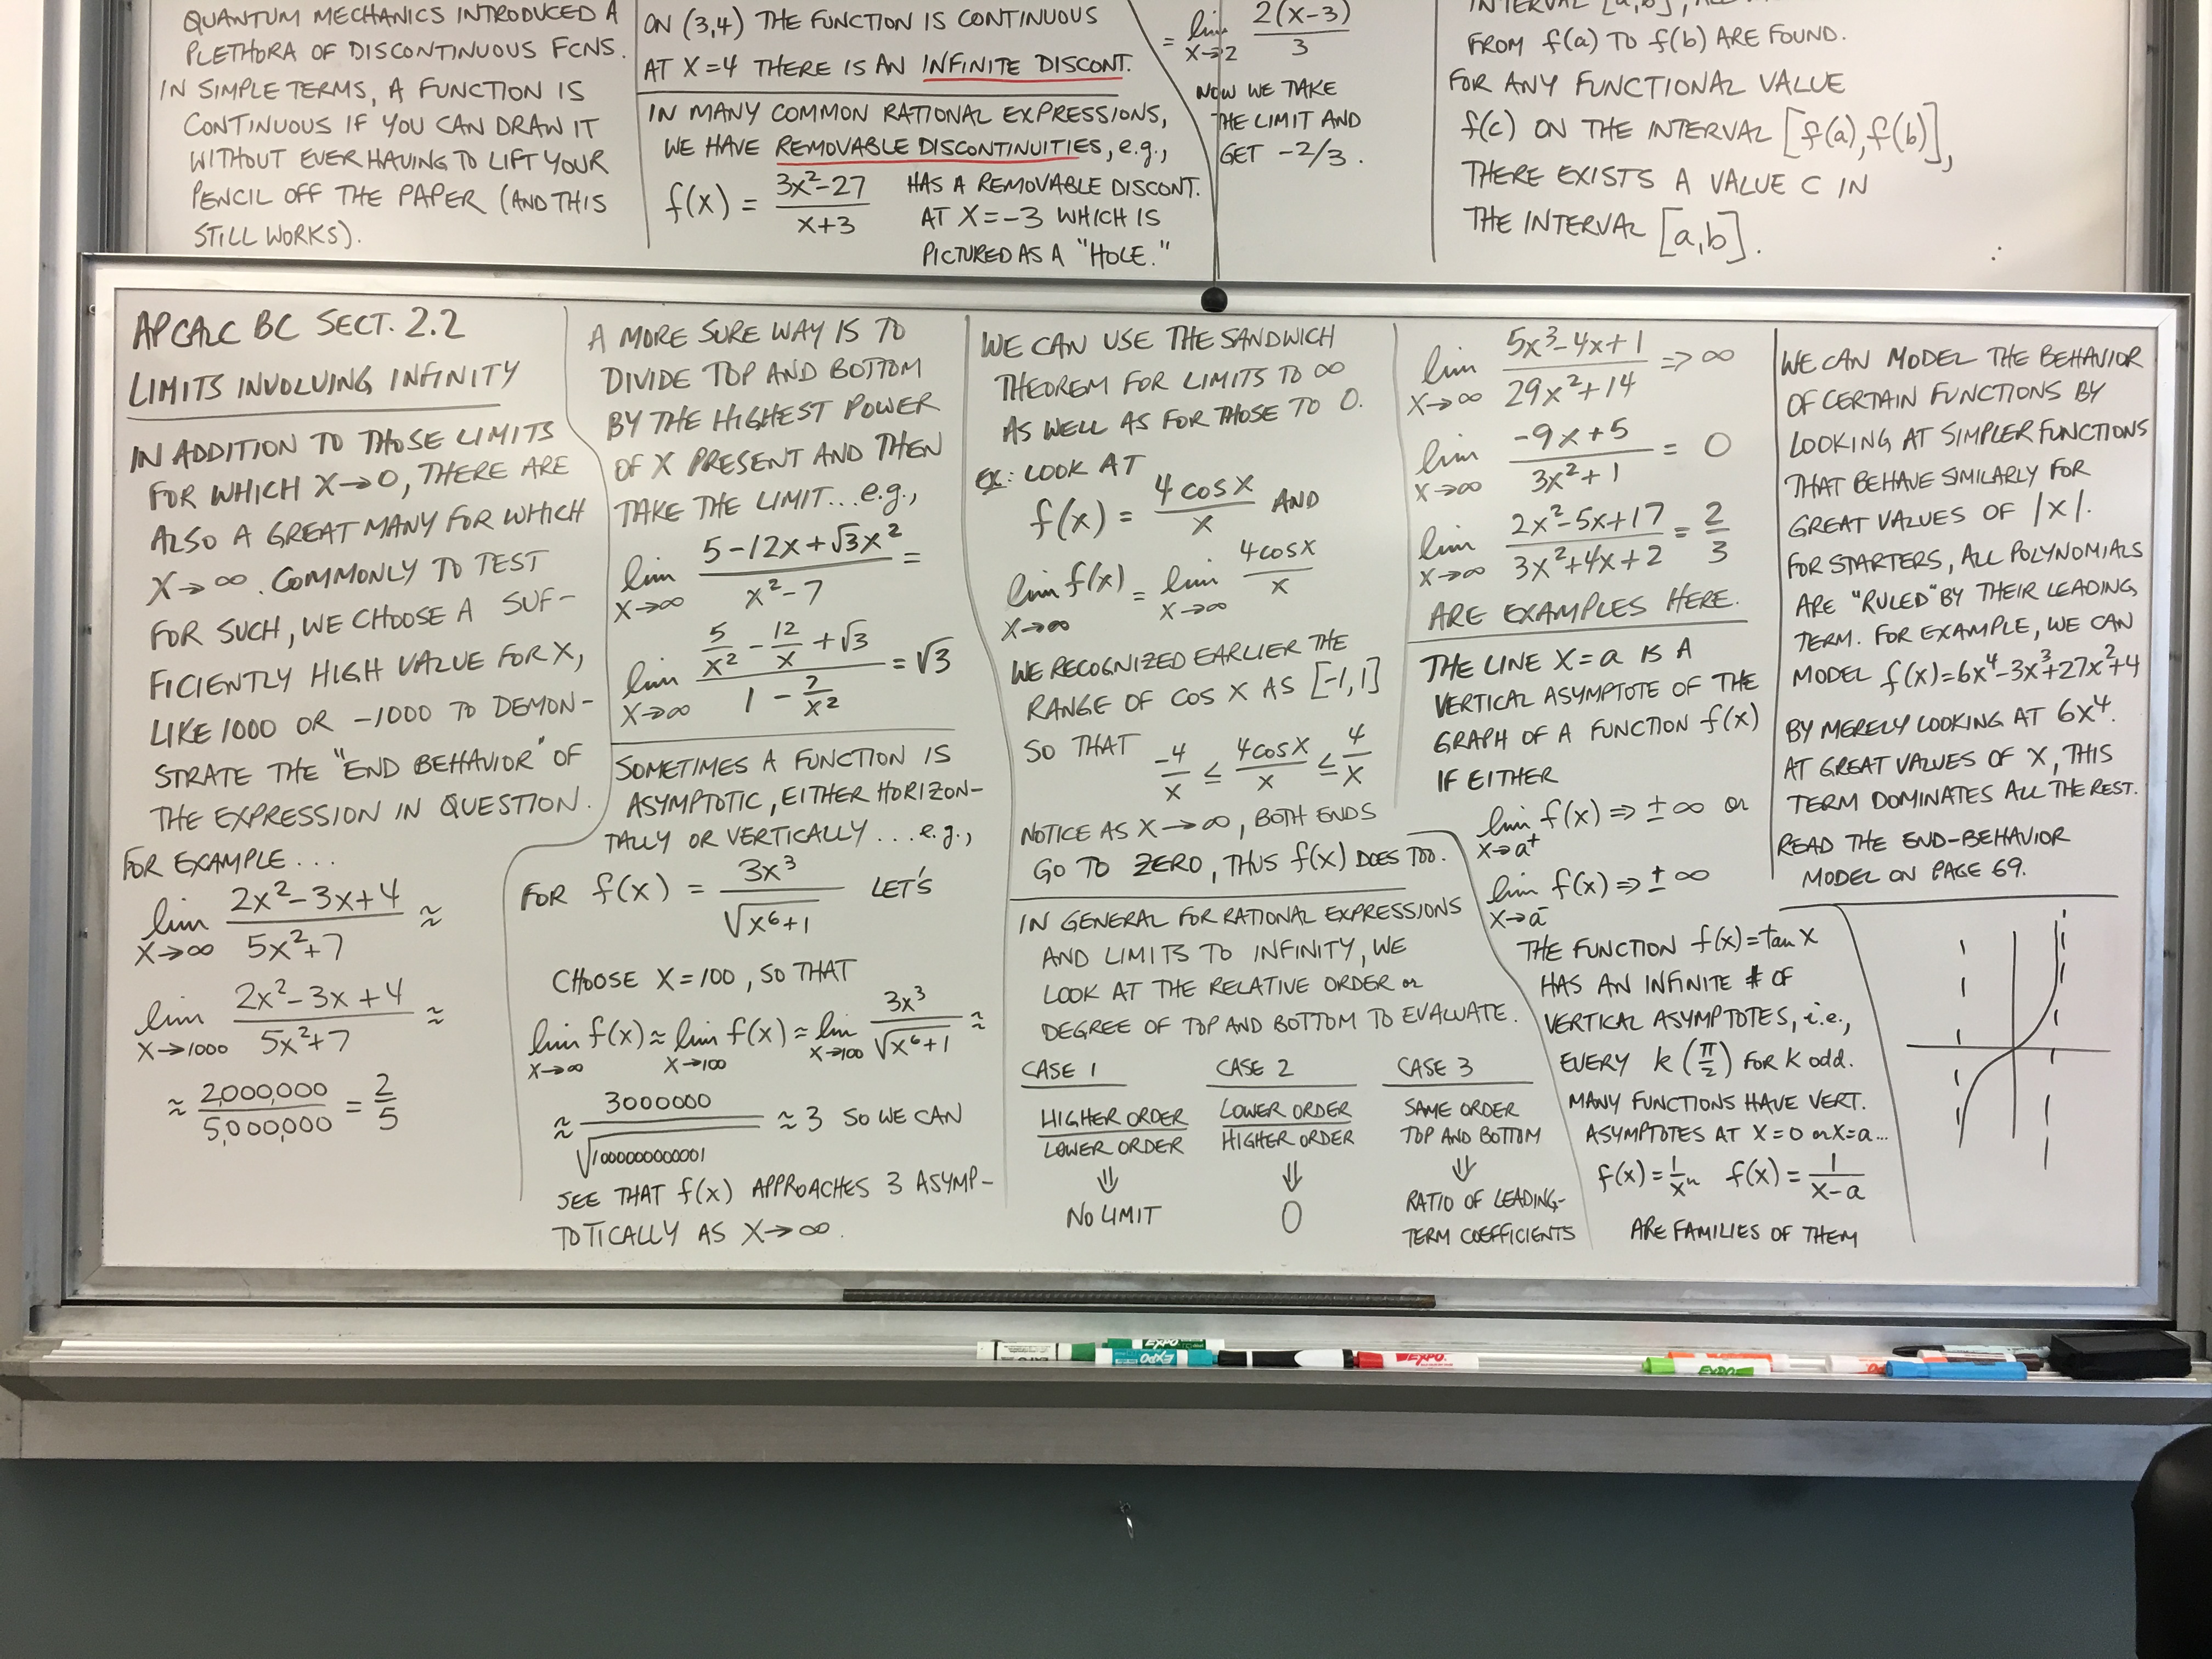 QUANTUM MECHANICS INTRODUCED A
PLETHORA OF DISCONTINUOUS FCNS.
IN SIMPLE TERMS, A FUNCTION IS
CONTINUOUS IF YOU CAN DRAW IT
WITHOUT EVER HAVING TO LIFT YOUR
PENCIL OFF THE PAPER (AND THIS
STILL WORKS).
ON (3,4) THE FUNCTION IS CONTINUOUS
AT X=4 THERE IS AN INFINITE DISCONT.
IN MANY COMMON RATIONAL EXPRESSIONS,
WE HAVE REMOVABLE DISCONTINUITIES, e.g.,
f(x) = (3x²-27)/(x+3) HAS A REMOVABLE DISCONT.
AT X=-3 WHICH IS
PICTURED AS A "HOLE."
= lim x→2 2(x-3)/3
NOW WE TAKE
THE LIMIT AND
GET -2/3.
FROM f(a) TO f(b) ARE FOUND.
FOR ANY FUNCTIONAL VALUE
f(c) ON THE INTERVAL [f(a),f(b)],
THERE EXISTS A VALUE C IN
THE INTERVAL [a,b].
AP CALC BC SECT. 2.2
LIMITS INVOLVING INFINITY
IN ADDITION TO THOSE LIMITS
FOR WHICH X→0, THERE ARE
ALSO A GREAT MANY FOR WHICH
X→∞. COMMONLY TO TEST
FOR SUCH, WE CHOOSE A SUF-
FICIENTLY HIGH VALUE FOR X,
LIKE 1000 OR -1000 TO DEMON-
STRATE THE "END BEHAVIOR" OF
THE EXPRESSION IN QUESTION.
FOR EXAMPLE...
lim X→∞ (2x²-3x+4)/(5x²+7) ≈
lim X→1000 (2x²-3x+4)/(5x²+7) ≈
≈ 2,000,000/5,000,000 = 2/5
A MORE SURE WAY IS TO
DIVIDE TOP AND BOTTOM
BY THE HIGHEST POWER
OF X PRESENT AND THEN
TAKE THE LIMIT... e.g.,
lim X→∞ (5-12x+√3x²)/(x²-7) =
lim X→∞ (5/x² - 12/x + √3)/(1 - 7/x²) = √3
SOMETIMES A FUNCTION IS
ASYMPTOTIC, EITHER HORIZON-
TALLY OR VERTICALLY... e.g.,
FOR f(x) = 3x³/√(x⁶+1) LET'S
CHOOSE X=100, SO THAT
lim X→∞ f(x) ≈ lim X→100 f(x) ≈ lim X→100 3x³/√(x⁶+1) ≈
≈ 3000000/√1000000000001 ≈ 3 SO WE CAN
SEE THAT f(x) APPROACHES 3 ASYMP-
TOTICALLY AS X→∞.
WE CAN USE THE SANDWICH
THEOREM FOR LIMITS TO ∞
AS WELL AS FOR THOSE TO 0.
EX: LOOK AT
f(x) = 4 cos x/x AND
lim X→∞ f(x) = lim X→∞ 4cosx/x
WE RECOGNIZED EARLIER THE
RANGE OF COS X AS [-1,1]
SO THAT -4/x ≤ 4cosx/x ≤ 4/x
NOTICE AS X→∞, BOTH ENDS
GO TO ZERO, THUS f(x) DOES TOO.
IN GENERAL FOR RATIONAL EXPRESSIONS
AND LIMITS TO INFINITY, WE
LOOK AT THE RELATIVE ORDER or
DEGREE OF TOP AND BOTTOM TO EVALUATE.
CASE 1 CASE 2 CASE 3
HIGHER ORDER/LOWER ORDER LOWER ORDER/HIGHER ORDER SAME ORDER
TOP AND BOTTOM
⇓ ⇓ ⇓
NO LIMIT 0 RATIO OF LEADING-
TERM COEFFICIENTS
lim X→∞ (5x³-4x+1)/(29x²+14) ⇒ ∞
lim X→∞ (-9x+5)/(3x²+1) = 0
lim X→∞ (2x²-5x+17)/(3x²+4x+2) = 2/3
ARE EXAMPLES HERE.
THE LINE X=a IS A
VERTICAL ASYMPTOTE OF THE
GRAPH OF A FUNCTION f(x)
IF EITHER
lim X→a⁺ f(x) ⇒ ±∞ or
lim X→a⁻ f(x) ⇒ ±∞
THE FUNCTION f(x)=tan x
HAS AN INFINITE # OF
VERTICAL ASYMPTOTES, i.e.,
EVERY k(π/2) FOR k odd.
MANY FUNCTIONS HAVE VERT.
ASYMPTOTES AT X=0 or X=a...
f(x)=1/xⁿ f(x)=1/(x-a)
ARE FAMILIES OF THEM
WE CAN MODEL THE BEHAVIOR
OF CERTAIN FUNCTIONS BY
LOOKING AT SIMPLER FUNCTIONS
THAT BEHAVE SIMILARLY FOR
GREAT VALUES OF |X|.
FOR STARTERS, ALL POLYNOMIALS
ARE "RULED" BY THEIR LEADING
TERM. FOR EXAMPLE, WE CAN
MODEL f(x)=6x⁴-3x³+27x²+4
BY MERELY LOOKING AT 6X⁴.
AT GREAT VALUES OF X, THIS
TERM DOMINATES ALL THE REST.
READ THE END-BEHAVIOR
MODEL ON PAGE 69.
EXPO
EXPO
EXPO
EXPO